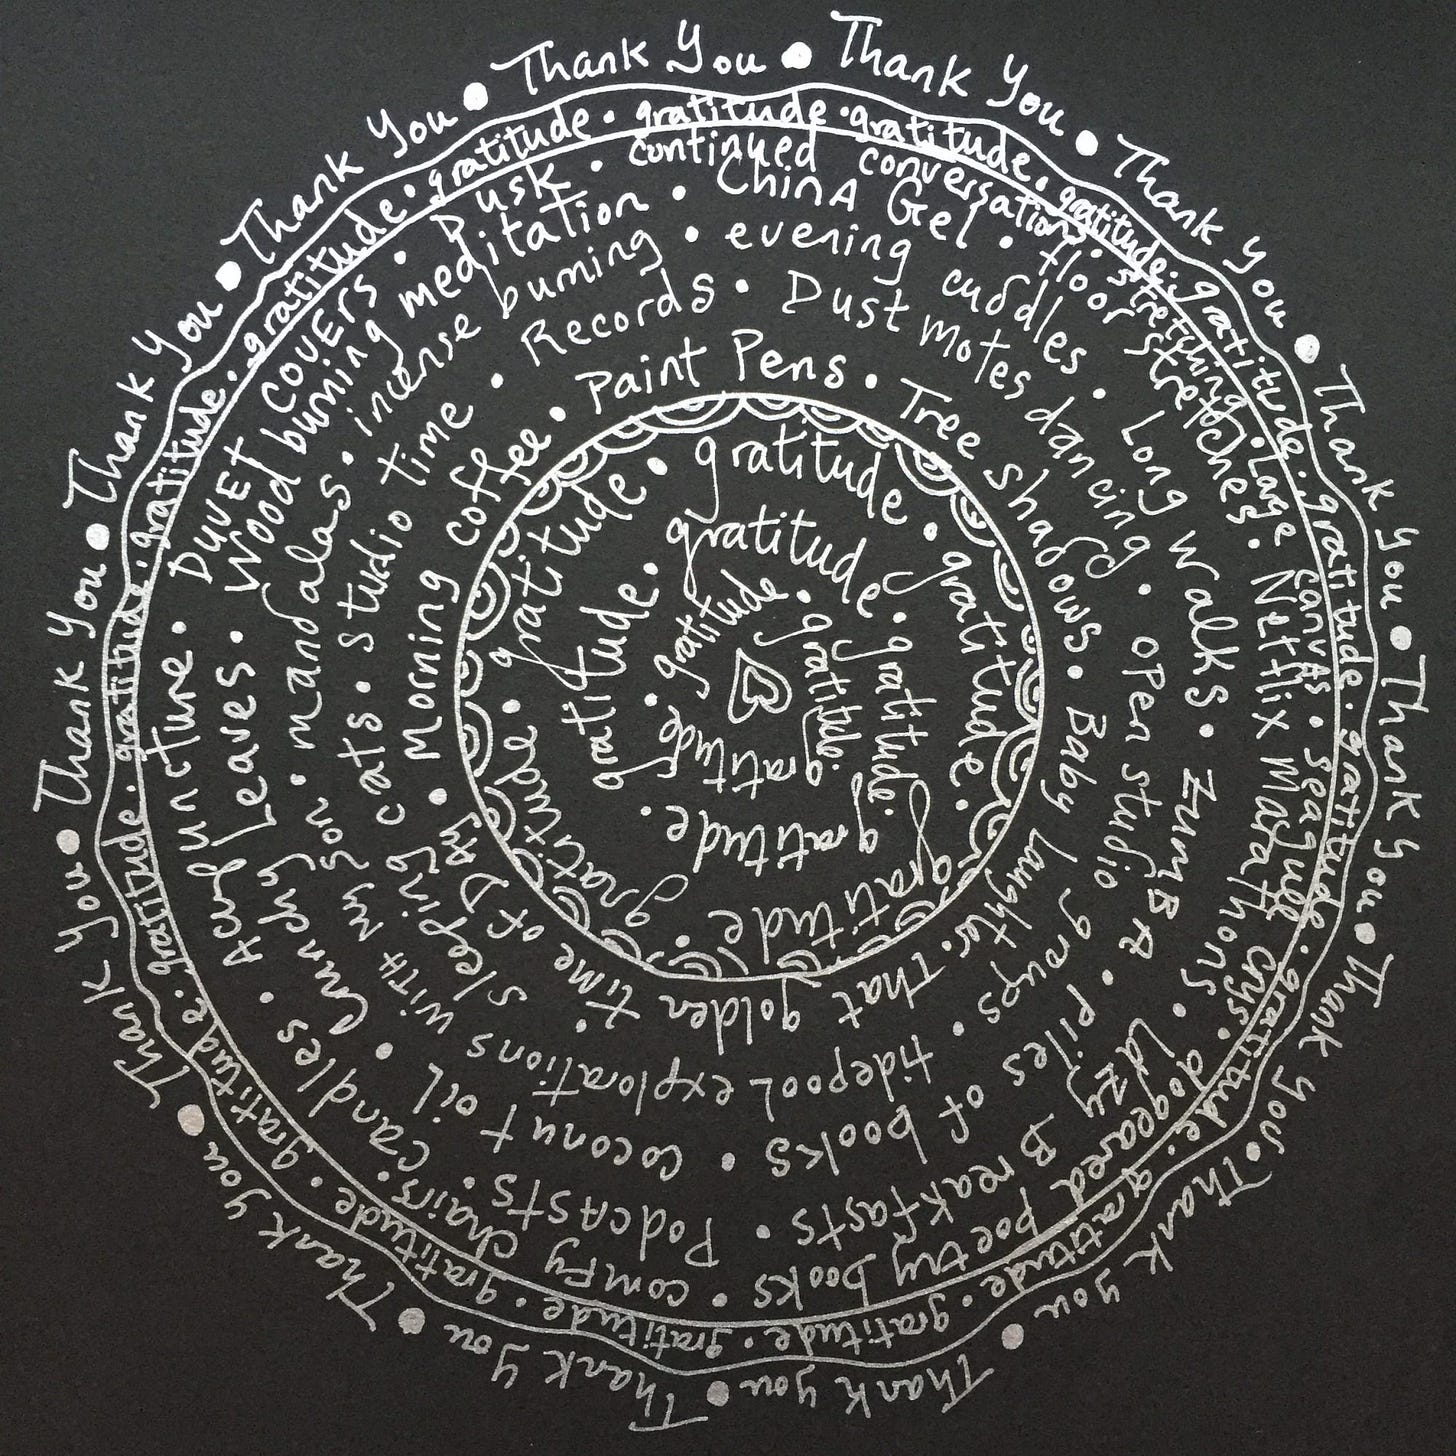 Thank You • Thank You • Thank You • Thank You • Thank You • Thank You • Thank You • Thank You • Thank You • Thank You • Thank You • Thank You • Thank You • Thank You •
gratitude • gratitude • gratitude • gratitude • gratitude • gratitude • gratitude • gratitude • gratitude • gratitude • gratitude • gratitude • gratitude • gratitude • gratitude • gratitude • gratitude • gratitude • gratitude •
continued conversations • stretching • Large canvas • dogeared poetry books • comfy chairs • candles • Acupuncture • Duvet covers • Dusk •
China Gel • floor stretches • Netflix Marathons • Lazy Breakfasts • Podcasts • Crunchy Leaves • Wood burning meditation •
evening cuddles • Long walks • Zumba • piles of books • coconut oil •
Records • Dust motes dancing • open studio groups • tidepool explorations with my son • mandalas • incense burning •
Paint Pens • Tree shadows • Baby Laughter • That golden time of Day • Morning coffee •
sleeping cats • studio time •
gratitude • gratitude • gratitude • gratitude • gratitude •
gratitude • gratitude • gratitude • gratitude •
gratitude • gratitude • gratitude •